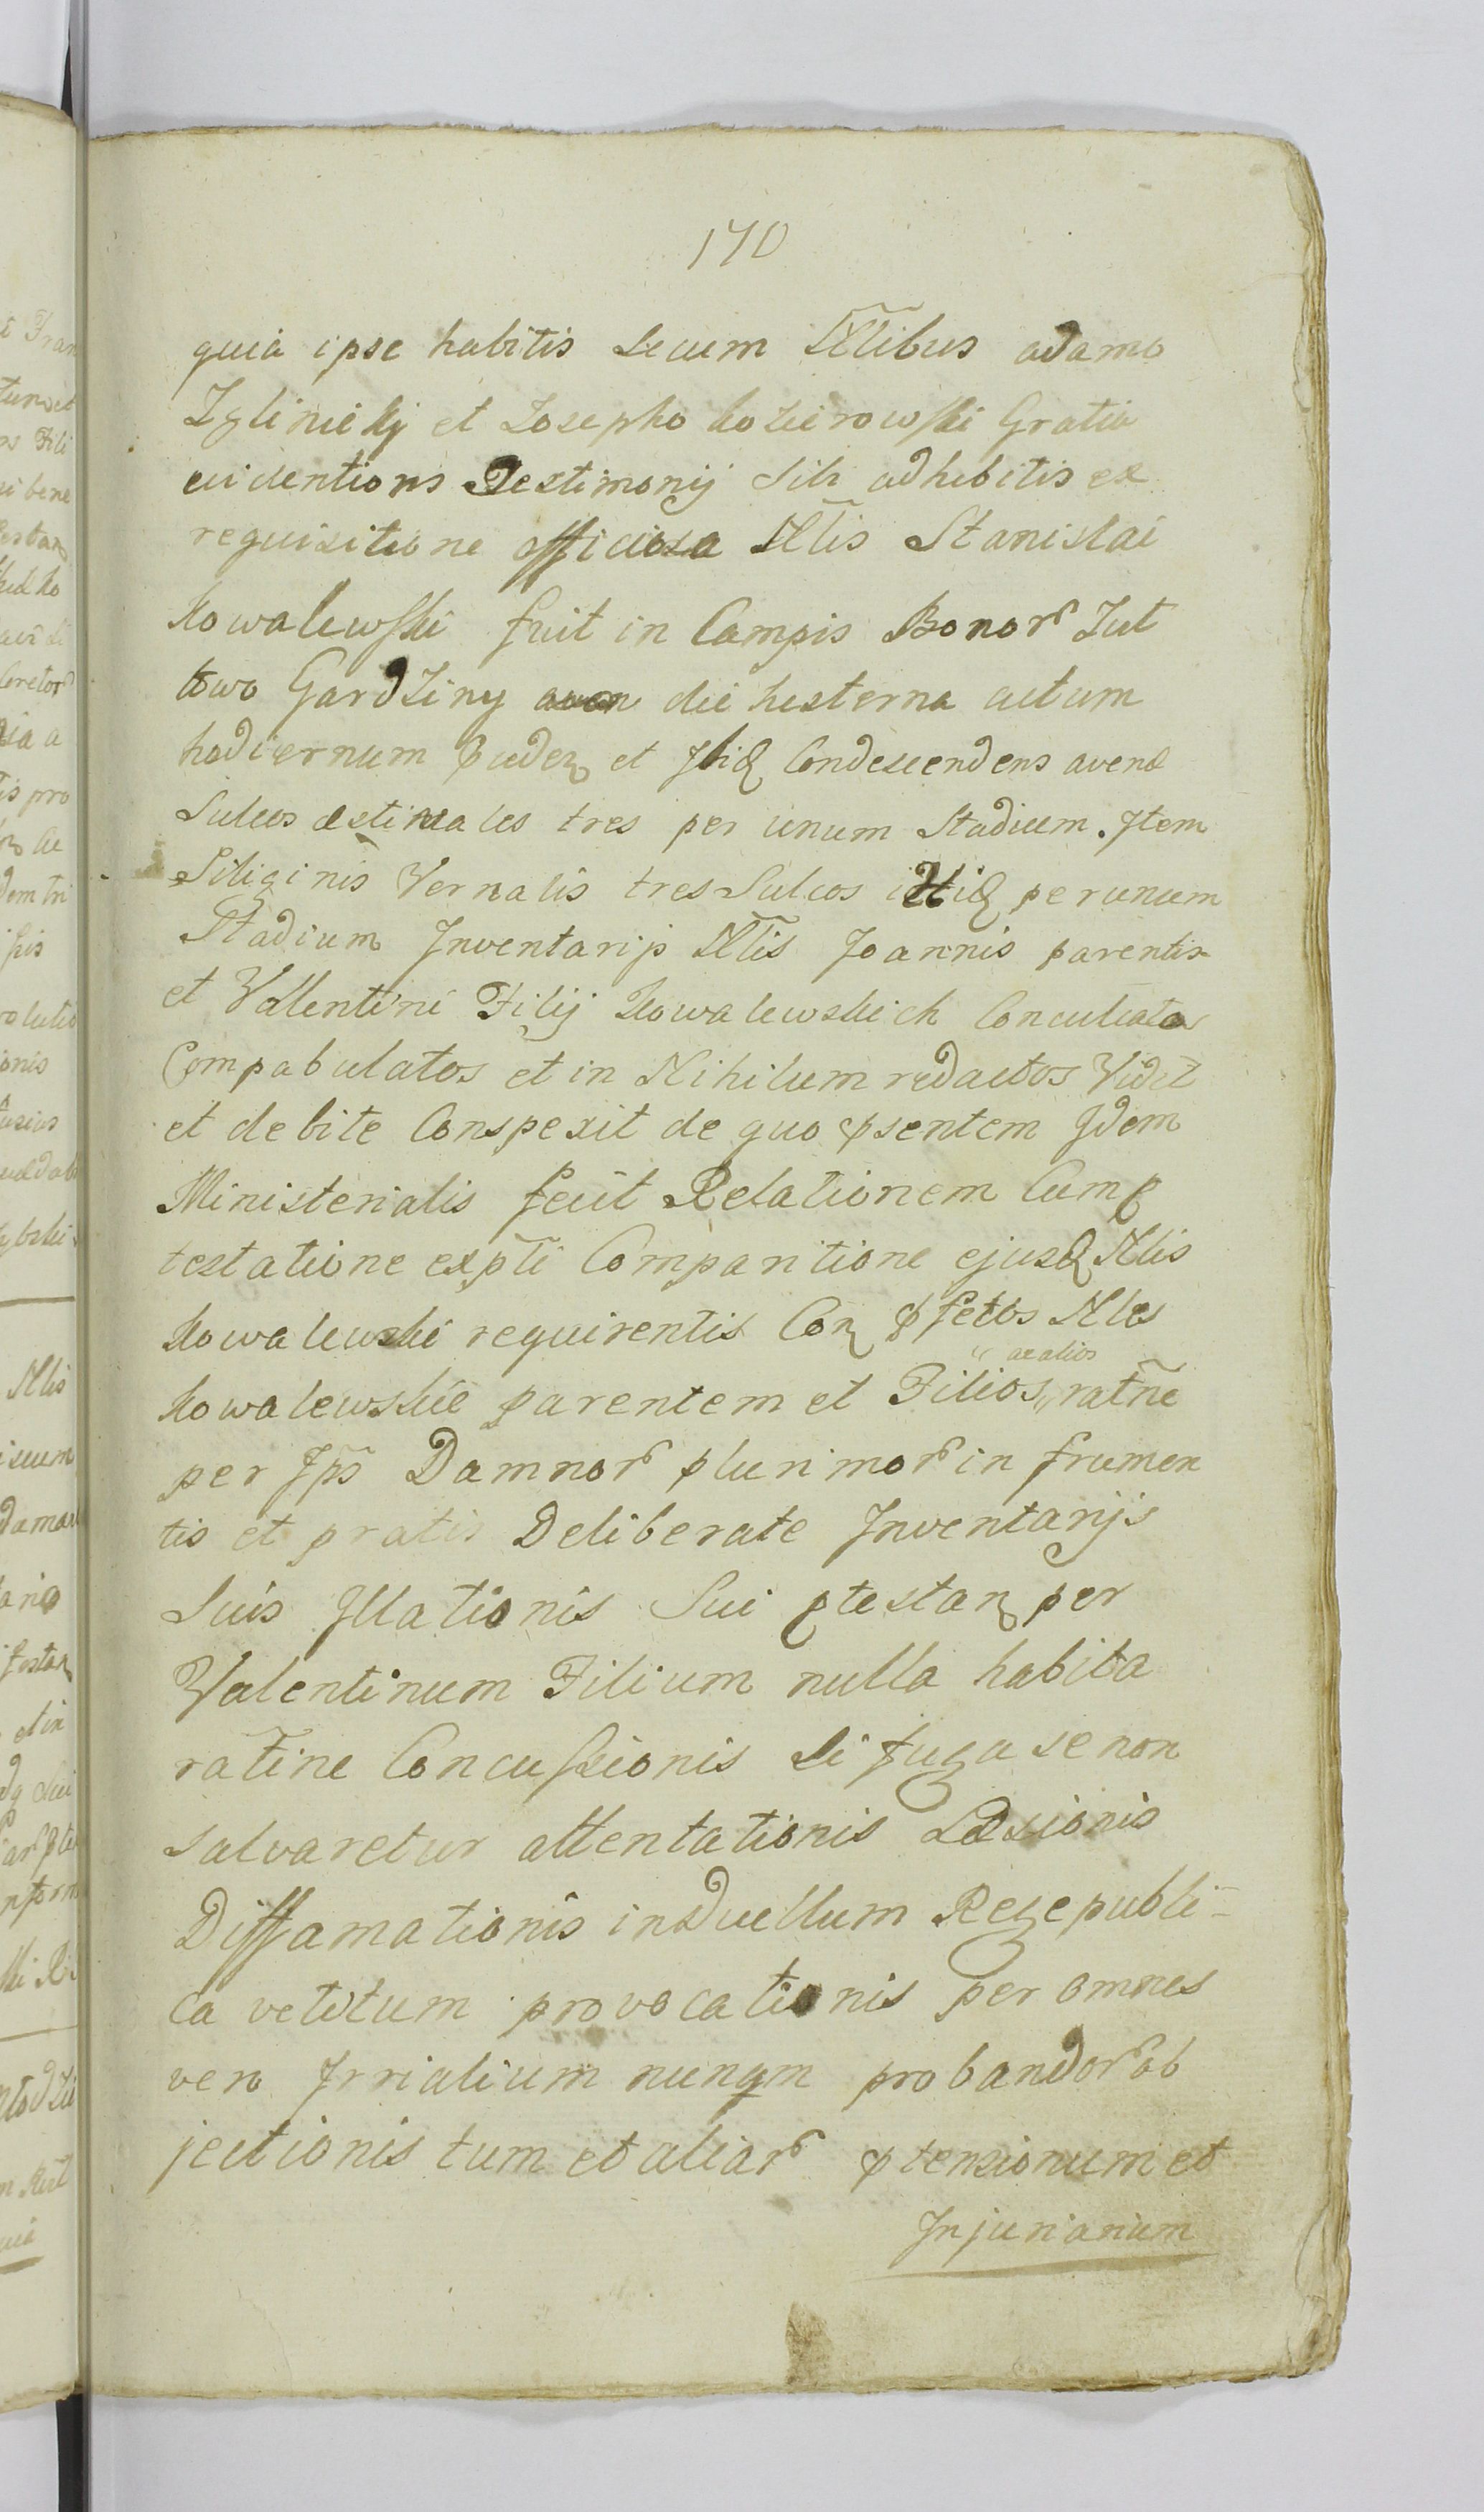 170
quia ipse habitis secum Nlibus adamo
Zglinickj et Josepho kozierowski Gratia
evidentioris Testimonij Sibi adhibitis ex
requisitione officiosa Nlis Stanislai
kowalewski fuit in Campis Bonor Jut
towo Gardziny die hesterna actum
hodiernum et Ibiq Condescendens avenæ
Sulcos æstivales tres per unum Stadium. Item
Siliginis Vernalis tres Sulcos per unum
Stadium Inventarijs Nlis Joannis parentis
et Vallentini Filij kowalewskich Conculcatos
Compabulatos et in Nihilum redactos Vidit
et debite Conspexit de quo psentem Idem
Ministerialis fecit Relationem Cum p
testatione ex pti Comparitione ejusd Nlis
kowalewski requirentis Con pfectos Nles
ac alios
kowalewskie parentem et Filios ratne
per Ips Damnor plurimor in frumen
tis et pratis Deliberate Inventarijs
Suis Illationis Sui ptestan per
Valentinum Filium nulla habita
ratine Concussionis Si fuga se non
salvaretur attentationis Læsionis
Diffamationis in Duellum Lege publi-
ca vetitum provocationis per omnes
vero nunqm probandor ob
jectionis tum et aliar ptensionum et
Injuriarum